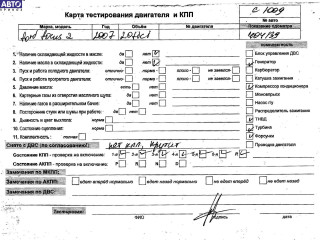 АВТО
Карта тестирования двигателя и КПП
С 1009
№ авто
Марка, модель
Год
Объём
№ двигателя
Показания одометра
Ford Focus 2 2007
комплектность:
1. Наличие охлаждающей жидкости в масле: да нет
2. Наличие масла в охлаждающей жидкости: да нет
3. Пуск и работа холодного двигателя: отлично норма не запуск.
4. Пуск и работа прогретого двигателя: отлично норма не запуск.
5. Давление масла: есть нет
6. Картерные газы из отверстия масляного щупа: да нет
7. Наличие газов в расширительном бачке: да нет
8. Посторонние стуки или шумы при работе: да нет
9. Дымность и цвет выхлопа: норма да
10. Состояние сцепления: норма
11. Комплектность: полная
Блок управления ДВС
Генератор
Карбюратор
Катушка зажигания
Компрессор кондиционера
Моновпрыск
Насос гту
Распределитель зажигания
ТНВД
Турбина
Форсунки
Проводка двигателя
Снято с ДВС (по согласованию):
Состояние КПП - проверка на включение: 1-я 2-я 3-я 4-я 5-я
Состояние АКПП - проверка на включение: P R N D
Замечания по МКПП:
Замечания по АКПП: едет вперёд нормально едет назад нормально не едет вперёд не едет назад
Замечания по ДВС:
Тестировал:
ФИО
подпись
дата